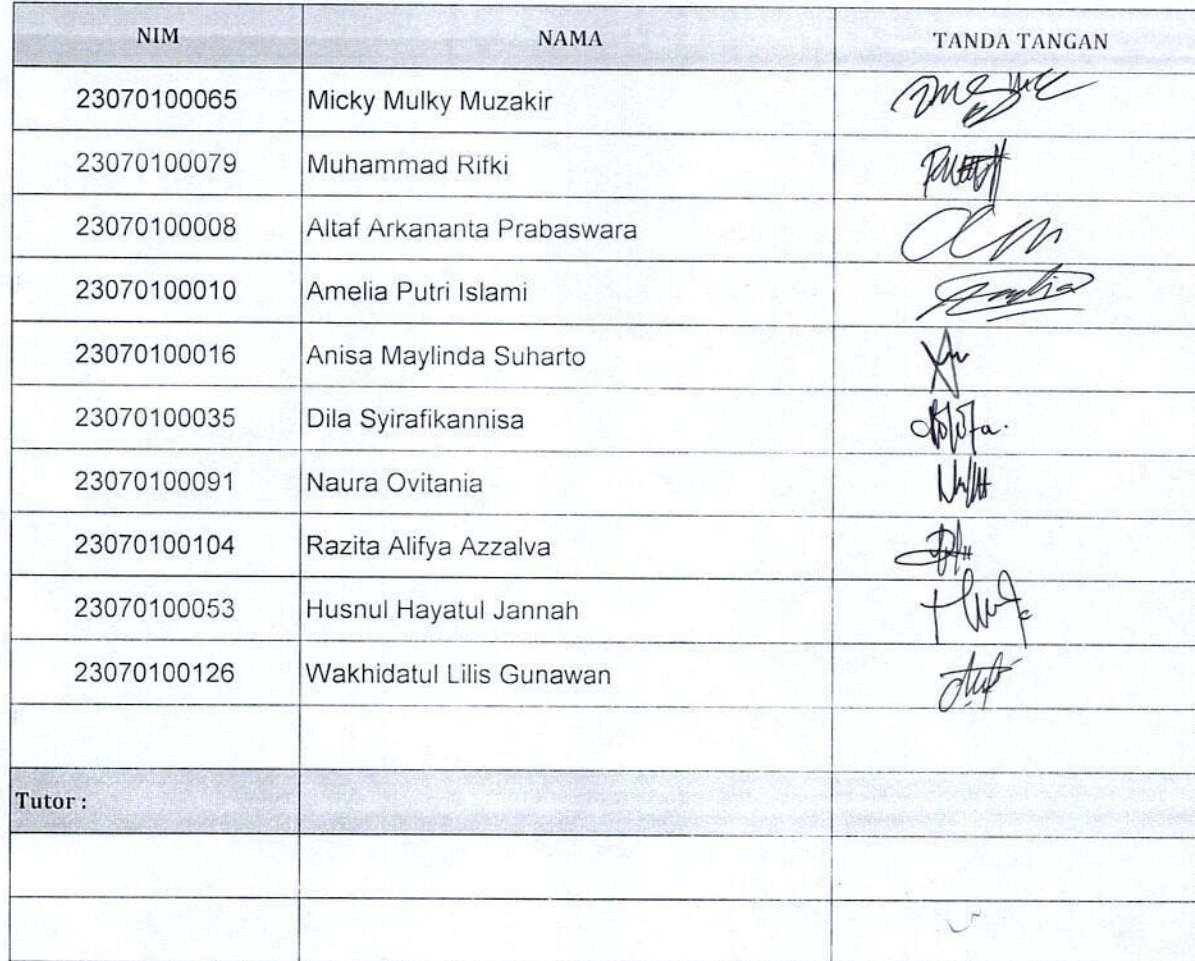 NIM NAMA TANDA TANGAN
23070100065 Micky Mulky Muzakir
23070100079 Muhammad Rifki
23070100008 Altaf Arkananta Prabaswara
23070100010 Amelia Putri Islami
23070100016 Anisa Maylinda Suharto
23070100035 Dila Syirafikannisa
23070100091 Naura Ovitania
23070100104 Razita Alifya Azzalva
23070100053 Husnul Hayatul Jannah
23070100126 Wakhidatul Lilis Gunawan
Tutor :